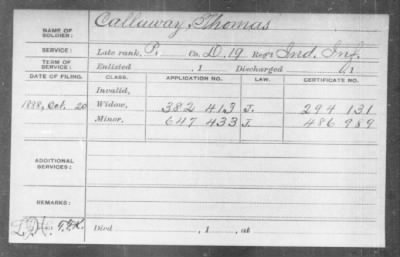 NAME OF SOLDIER: Callaway, Thomas
SERVICE: Late rank, P., Co. D, 19 Reg't Ind. Inf.
TERM OF SERVICE: Enlisted , 1 Discharged , 1
DATE OF FILING. CLASS. APPLICATION NO. LAW. CERTIFICATE NO.
Invalid,
1888, Oct. 20 Widow, 382 413 J. 294 131
Minor, 647 433 J. 486 989
ADDITIONAL SERVICES:
REMARKS:
Died , 1 , at